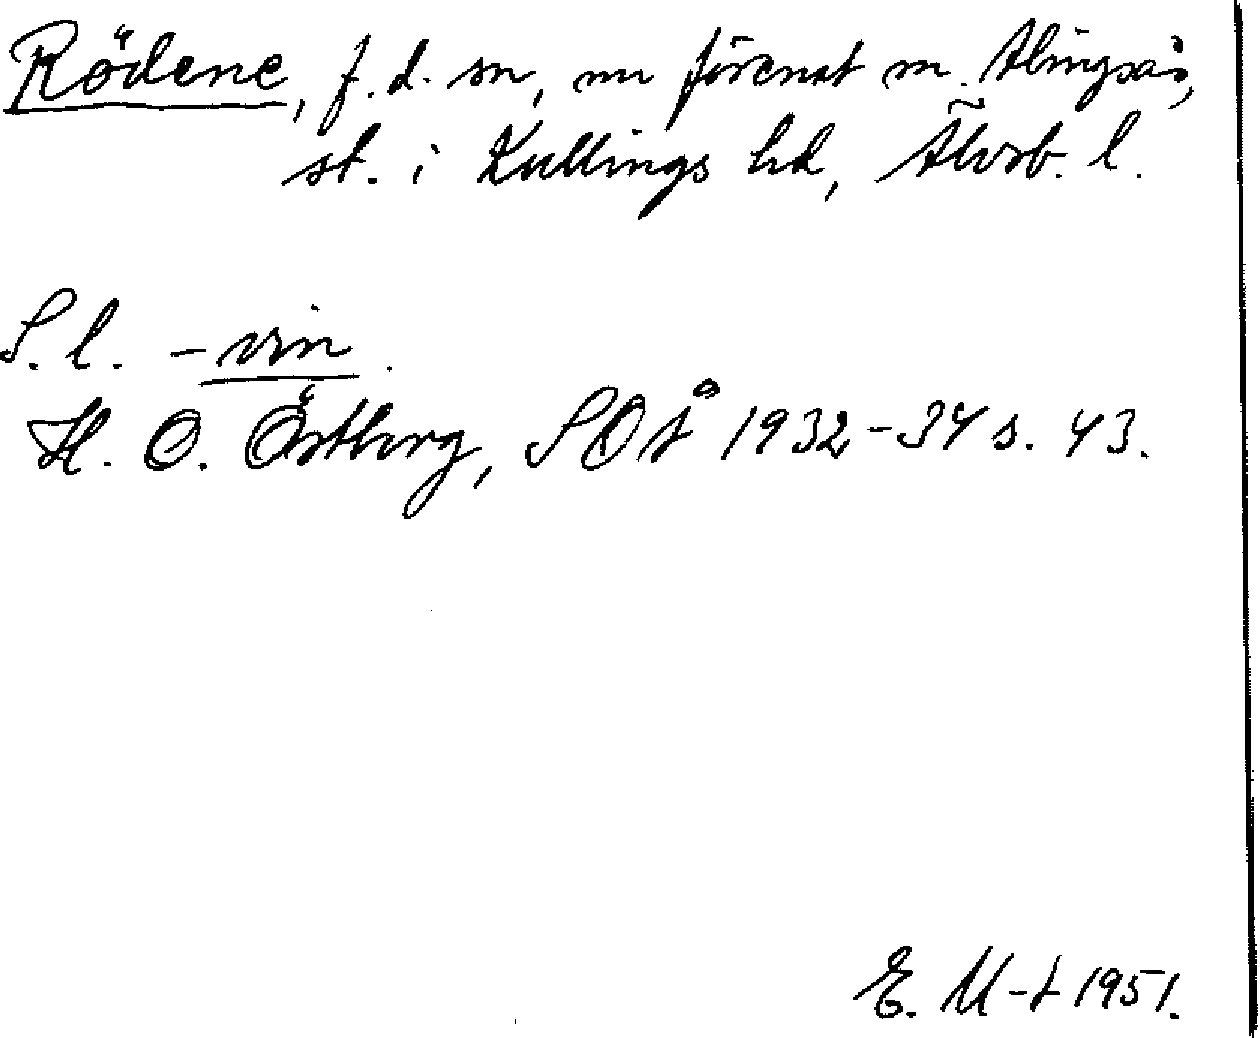 Rödene, f. d. sn, nu förenat m. Alingsås,
st. i Kullings hd, Älvsb. l.
S. l. -vin.
H. O. Östberg, SOÅ 1932-34 s. 43.
E. M-t 1951.